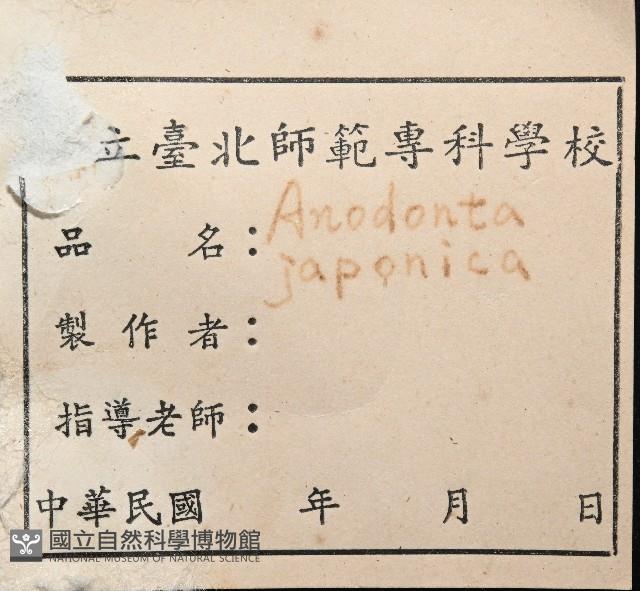 立臺北師範專科學校
品名：Anodonta
japonica
製作者：
指導老師：
中華民國 年 月 日
國立自然科學博物館
NATIONAL MUSEUM OF NATURAL SCIENCE